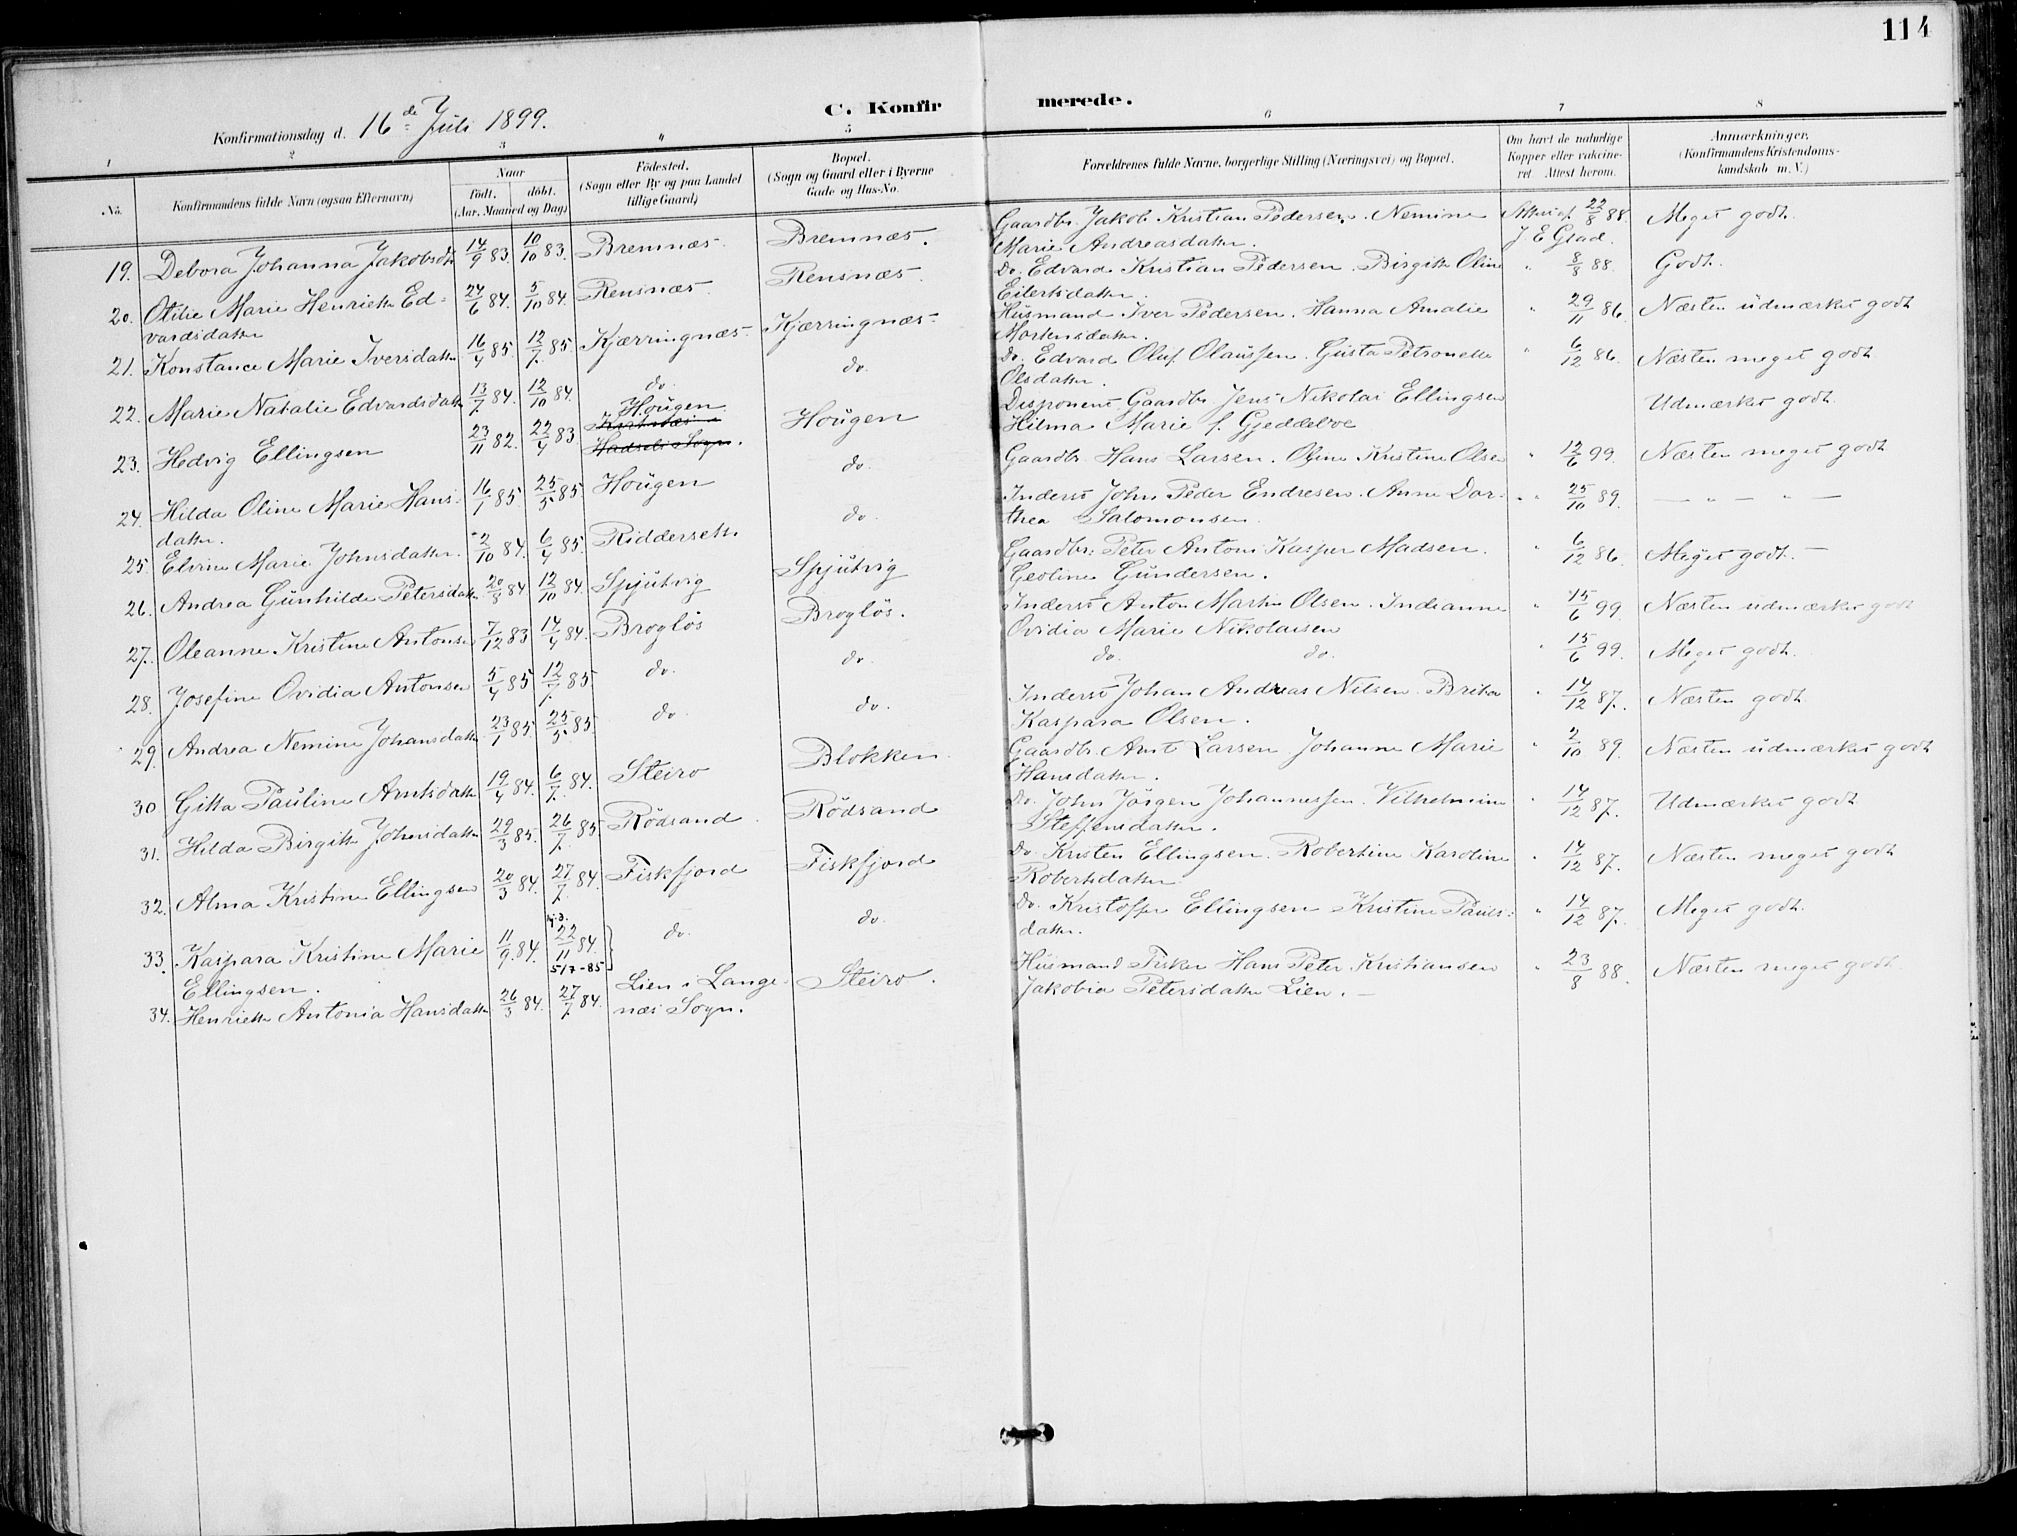 114
C. Konfirmerede.
Konfirmationsdag d. 16de Juli 1899.
1 2 3 4 5 6 7 8
No. Konfirmandens fulde Navn (ogsaa Efternavn) Naar født, døbt. (Aar, Maaned og Dag) Fødested. (Sogn eller By og paa Landet tillige Gaard) Bopæl. (Sogn og Gaard eller i Byerne Gade og Hus-No. Forældrenes fulde Navne, borgerlige Stilling (Næringsvei) og Bopæl. Om havt de naturlige Kopper eller vakcineret. Attest herom. Anmærkninger. (Konfirmandens Kristendomskundskab m. V.)
19. Debora Johanna Jakobsdt 14/9 83 10/10 83. Bremnæs. Bremnæs. Gaardbr. Jakob Kristian Pedersen. Nemine 22/8 88. Meget godt.
Marie Andreasdatter. J E Glad.
20. Otilie Marie Henriette Ed- 24/6 84. 5/10 84. Rensnæs. Rensnæs. Do. Edvard Kristian Pedersen. Birgitte Oline " 8/8 88. Godt.
vardsdatter Eilertsdatter.
21. Konstance Marie Iversdatter 16/4 85 12/7 85. Kjærringnæs. Kjærringnæs. Husmand Iver Pedersen. Hanna Amalie " 29/11 86. Næsten udmærket godt
Mortensdatter.
22. Marie Natalie Edvardsdatter 13/7 84. 12/10 84. do. do. do. Edvard Oluf Olaussen. Gusta Petronelle " 6/12 86. Næsten meget godt
Olsdatter.
23. Hedvig Ellingsen 23/11 82. 22/4 83 Hougen Hadsels Sogn. Hougen Disponent Gaardbr. Jens Nikolai Ellingsen Udmærket godt.
Hilma Marie f. Gjeddeboe
24. Hilda Oline Marie Hans- 16/1 85. 25/5 85 Hougen do. Gaardbr. Hans Larsen. Oline Kristine Olsen " 12/6 99. Næsten meget godt
datter.
25. Elvine Marie Johnsdatter. 2/10 84. 6/4 85. Riddersette do. Inderst John Peder Endresen. Anne Dor- " 25/10 89. — " — " —
thea Salomonsen.
26. Andrea Gunhilde Petersdatter 20/8 84 12/10 84. Spjutvig Spjutvig Gaardbr. Peter Antoni Kasper Madsen. " 6/12 86. Meget godt. —
Geoline Gundersen.
27. Oleanne Kristine Antonsen 7/12 83 14/4 84. Brogløs Brogløs. Inderst Anton Martin Olsen. Indianne " 15/6 99. Næsten udmærket godt
Ovidia Marie Nikolaisen
28. Josefine Ovidia Antonsen 5/4 85 12/7 85. do. do. do. do. " 15/6 99. Meget godt.
29. Andrea Nemine Johansdatter 23/1 85. 25/5 85 do. do. Inderst Johan Andreas Nilsen. " 14/12 87. Næsten godt.
Kaspara Olsen.
30 Gitta Pauline Arntsdatter 19/4 84. 6/7 84. Steiro Blokken. Gaardbr. Arnt Larsen. Johanne Marie " 2/10 89. Næsten udmærket godt
Hansdatter.
31. Hilda Birgitte Johnsdatter 29/3 85. 26/7 85 Rødsand. Rødsand Do. John Jørgen Johannessen. Vilhelmine " 14/12 87. Udmærket godt.
Steffensdatter.
32. Alma Kristine Ellingsen 20/3 84. 27/7 84. Fiskfjord Fiskfjord Do. Kristen Ellingsen. Robertine Karoline " 14/12 87. Næsten meget godt
Robertsdatter.
33. Kaspara Kristine Marie 11/9 84. hj.d. 22/11 84 5/7-85 do. do. Do. Kristoffer Ellingsen Kristine Pauls- " 14/12 87. Meget godt.
Ellingsen. datter.
34. Henriette Antonia Hansdatter 26/3 84. 27/7 84. Lien i Lange- Steiro. Husmand Fisker Hans Peter Kristiansen " 23/8 88. Næsten meget godt.
næs Sogn. Jakobia Petersdatter Lien. —